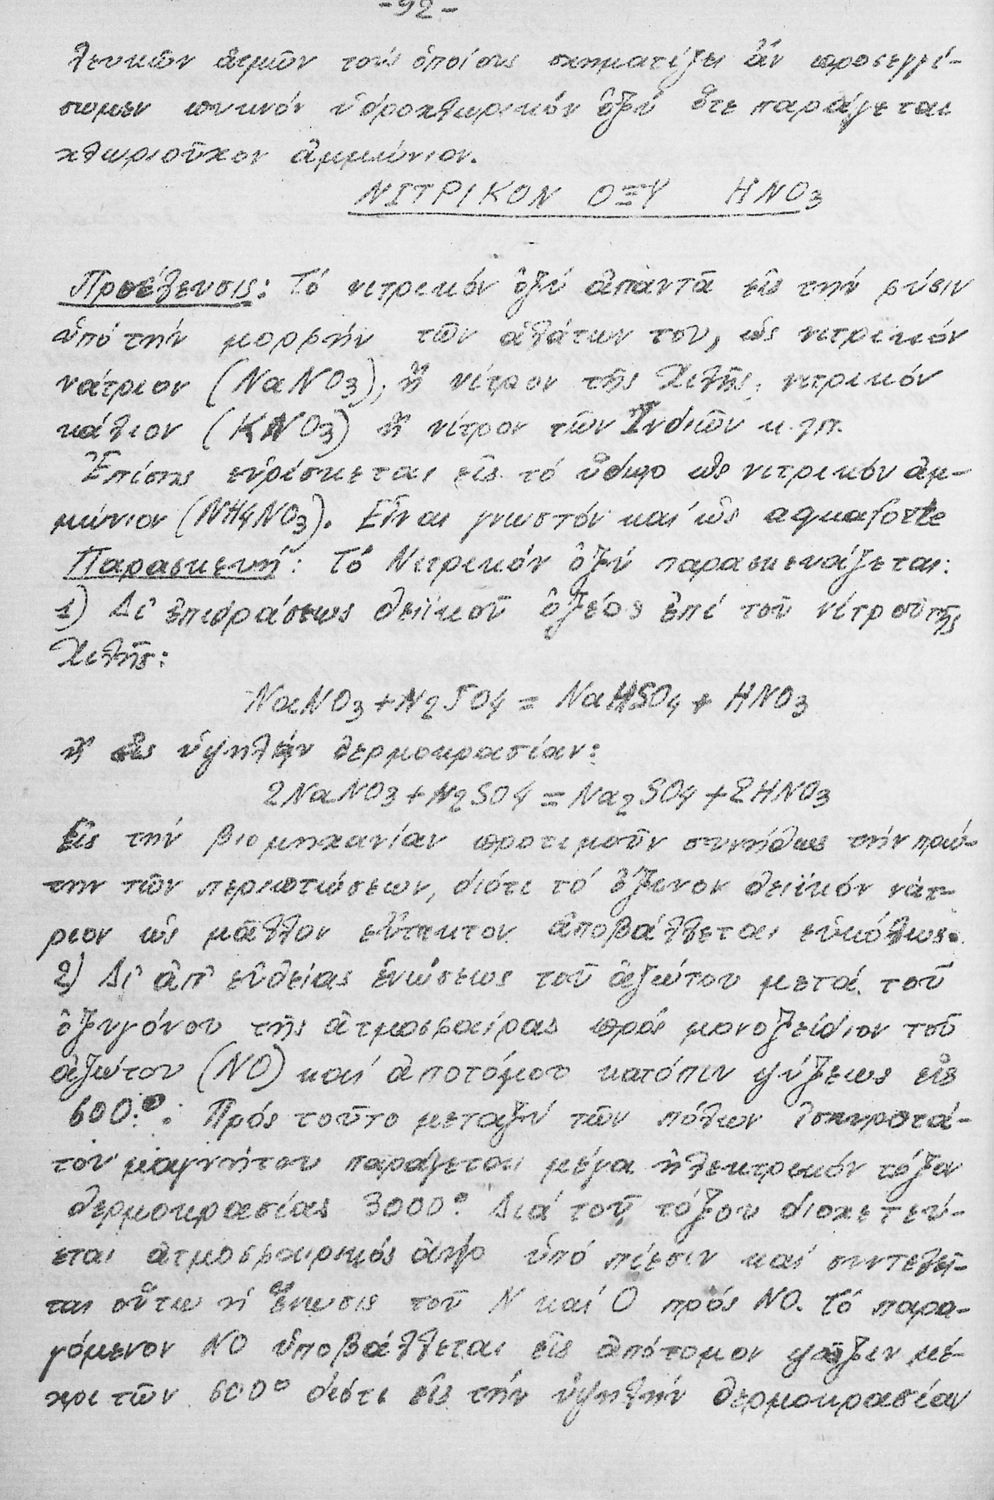 -92-
λευκῶν ἀτμῶν τούς ὁποίους σχηματίζει ἄν προσεγγί-
σωμεν πυκνόν ὑδροχλωρικόν ὀξύ ὅτε παράγεται
χλωριοῦχον ἀμμώνιον.
ΝΙΤΡΙΚΟΝ ΟΞΥ HNO3
Προέλευσις: Τό νιτρικόν ὀξύ ἀπαντᾶ εἰς τήν φύσιν
ὑπό τήν μορφήν τῶν ἁλάτων του, ὡς νιτρικόν
νάτριον (NaNO3), ἤ νίτρον τῆς Χιλῆς, νιτρικόν
κάλιον (KNO3) ἤ νίτρον τῶν Ἰνδιῶν κ.λπ.
Ἐπίσης εὑρίσκεται εἰς τό ὕδωρ ὡς νιτρικόν ἀμ-
μώνιον (NH4NO3). Εἶναι γνωστόν καί ὡς aquaforte
Παρασκευή: Τό Νιτρικόν ὀξύ παρασκευάζεται:
1) Δι' ἐπιδράσεως θειϊκοῦ ὀξέος ἐπί τοῦ νίτρου τῆς
Χιλῆς:
NaNO3 + H2SO4 = NaHSO4 + HNO3
ἤ εἰς ὑψηλήν θερμοκρασίαν:
2NaNO3 + H2SO4 = Na2SO4 + 2HNO3
Εἰς τήν βιομηχανίαν προτιμοῦν συνήθως τήν πρώ-
την τῶν περιπτώσεων, διότι τό ὄξινον θειϊκόν νάτ-
ριον ὡς μᾶλλον εὔτηκτον ἀποβάλλεται εὐκόλως.
2) Δι' ἀπ' εὐθείας ἑνώσεως τοῦ ἀζώτου μετά τοῦ
ὀξυγόνου τῆς ἀτμοσφαίρας πρός μονοξείδιον τοῦ
ἀζώτου (NO) καί ἀποτόμου κατόπιν ψύξεως εἰς
600°: Πρός τοῦτο μεταξύ τῶν πόλων ἰσχυροτά-
του μαγνήτου παράγεται μέγα ἠλεκτρικόν τόξον
θερμοκρασίας 3000° Διά τοῦ τόξου διοχετεύ-
εται ἀτμοσφαιρικός ἀήρ ὑπό πίεσιν καί συντελεῖ-
ται οὕτω ἡ ἕνωσις τοῦ N καί O πρός NO. Τό παρα-
γόμενον NO ὑποβάλλεται εἰς ἀπότομον ψύξιν μέ-
χρι τῶν 600° διότι εἰς τήν ὑψηλήν θερμοκρασίαν